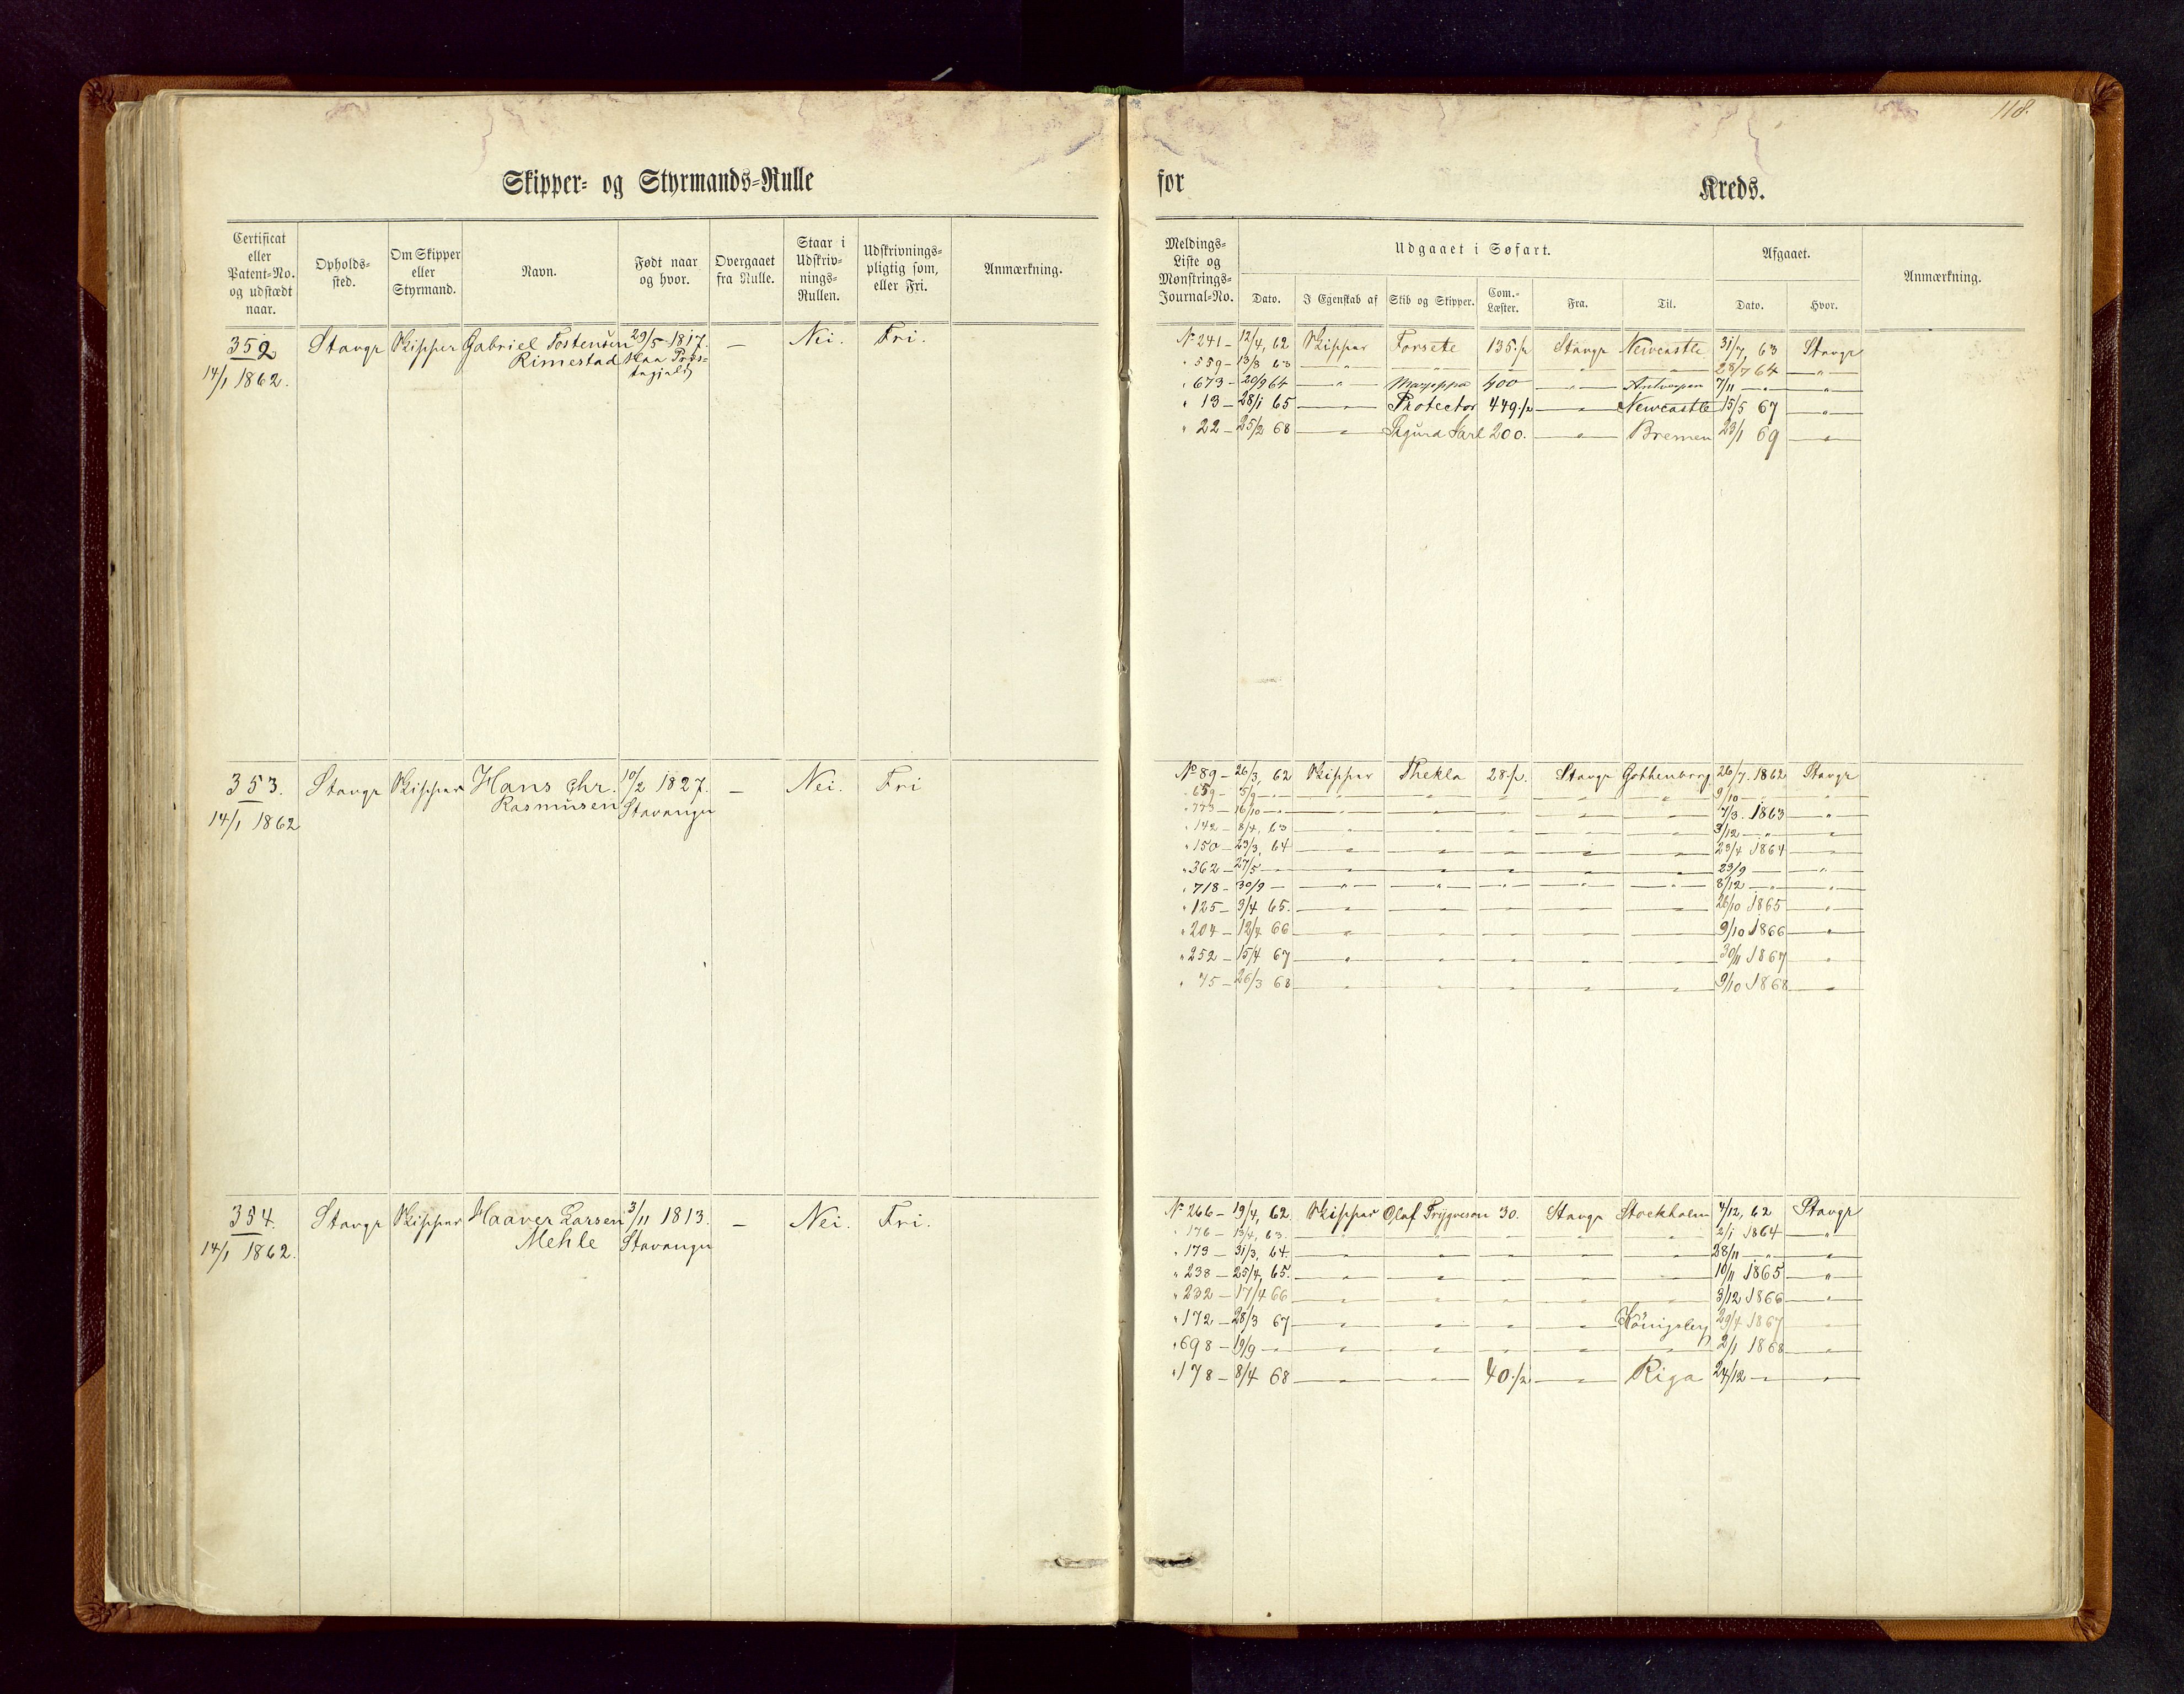 118.
Skipper- og Styrmands-Rulle for Kreds.
Certificat eller Patent-No. og udstædt naar. Opholds-sted. Om Skipper eller Styrmand. Navn. Født naar og hvor. Overgaaet fra Rulle. Staar i Udskriv-nings-Rullen. Udskrivnings-pligtig som, eller Fri. Anmærkning.
Meldings-Liste og Mønstrings-Journal-No. Udgaaet i Søfart. Afgaaet. Anmærkning.
Dato. I Egenskab af Skib og Skipper. Com.-Læster. Fra. Til. Dato. Hvor.
352 Stavgr Skipper Gabriel Tostensen 29/5 1817. — Nei. Fri.
Rimestad Haa Præs-
14/1 1862. tegjeld
No 241 — 12/4, 62 Skipper Forsete 135 1/2 Stavgr Newcastle 31/7, 63 Stavgr
" 559 — 13/8 63 — " — — " — — " — — " — — " — 28/7 64 — " —
" 673 — 20/9 64 — " — Mazeppa 400 — " — Antwerpen 7/11 — " — — " —
" 13 — 28/1 65 — " — Protector 449 1/2 — " — Newcastle 15/5 67 — " —
" 22 — 25/2 68 — " — Sigurd Jarl 200. — " — Bremen 23/1 69 — " —
353. Stavgr Skipper Hans Chr. 10/2 1827. — Nei. Fri
Rasmusen Stavanger
14/1 1862
No 89 — 26/3, 62 Skipper Thekla 28 1/2. Stavgr Gothenborg 26/7. 1862 Stavgr
" 659 — 5/9 — " — — " — — " — — " — — " — — " — 9/10 — " — — " —
" 773 — 16/10 — " — — " — — " — — " — — " — — " — 7/3. 1863 — " —
" 142 — 8/4, 63 — " — — " — — " — — " — — " — 3/12 — " — — " —
" 150 — 23/3, 64 — " — — " — — " — — " — — " — 23/4 1864 — " —
" 362 — 27/5 — " — — " — — " — — " — — " — — " — 29/9 — — " —
" 718 — 30/9 — — " — — " — — " — — " — — " — 8/12 — " — — " —
" 125 — 3/4 65. — " — — " — — " — — " — — " — 26/10 1865 — " —
" 204 — 12/4 66 — " — — " — — " — — " — — " — 9/10 1866 — " —
" 252 — 15/4 67 — " — — " — — " — — " — — " — 30/11 1867 — " —
" 75 — 26/3 68 — " — — " — — " — — " — — " — 9/10 1868 — " —
354. Stavgr Skipper Haaver Larsen 3/11 1813. — Nei. Fri.
Mehle Stavanger
14/1 1862.
No 266 — 19/4, 62. Skipper Olaf Trygveson 30. Stavgr Stockholm 4/12, 62 Stavgr
" 176 — 13/4, 63. — " — — " — — " — — " — — " — 2/1 1864 — " —
" 173 — 31/3, 64. — " — — " — — " — — " — — " — 28/11 — " — — " —
" 238 — 25/4, 65. — " — — " — — " — — " — — " — 10/11 1865 — " —
" 232 — 17/4 66 — " — — " — — " — — " — — " — 3/12 1866 — " —
" 172 — 28/3 67 — " — — " — — " — — " — Königsberg 29/4 1867 — " —
" 698 — 19/9 — " — — " — — " — — " — — " — — " — 2/1 1868 — " —
" 178 — 8/4 68 — " — — " — 40 1/2 — " — Riga 24/12 — " — — " —